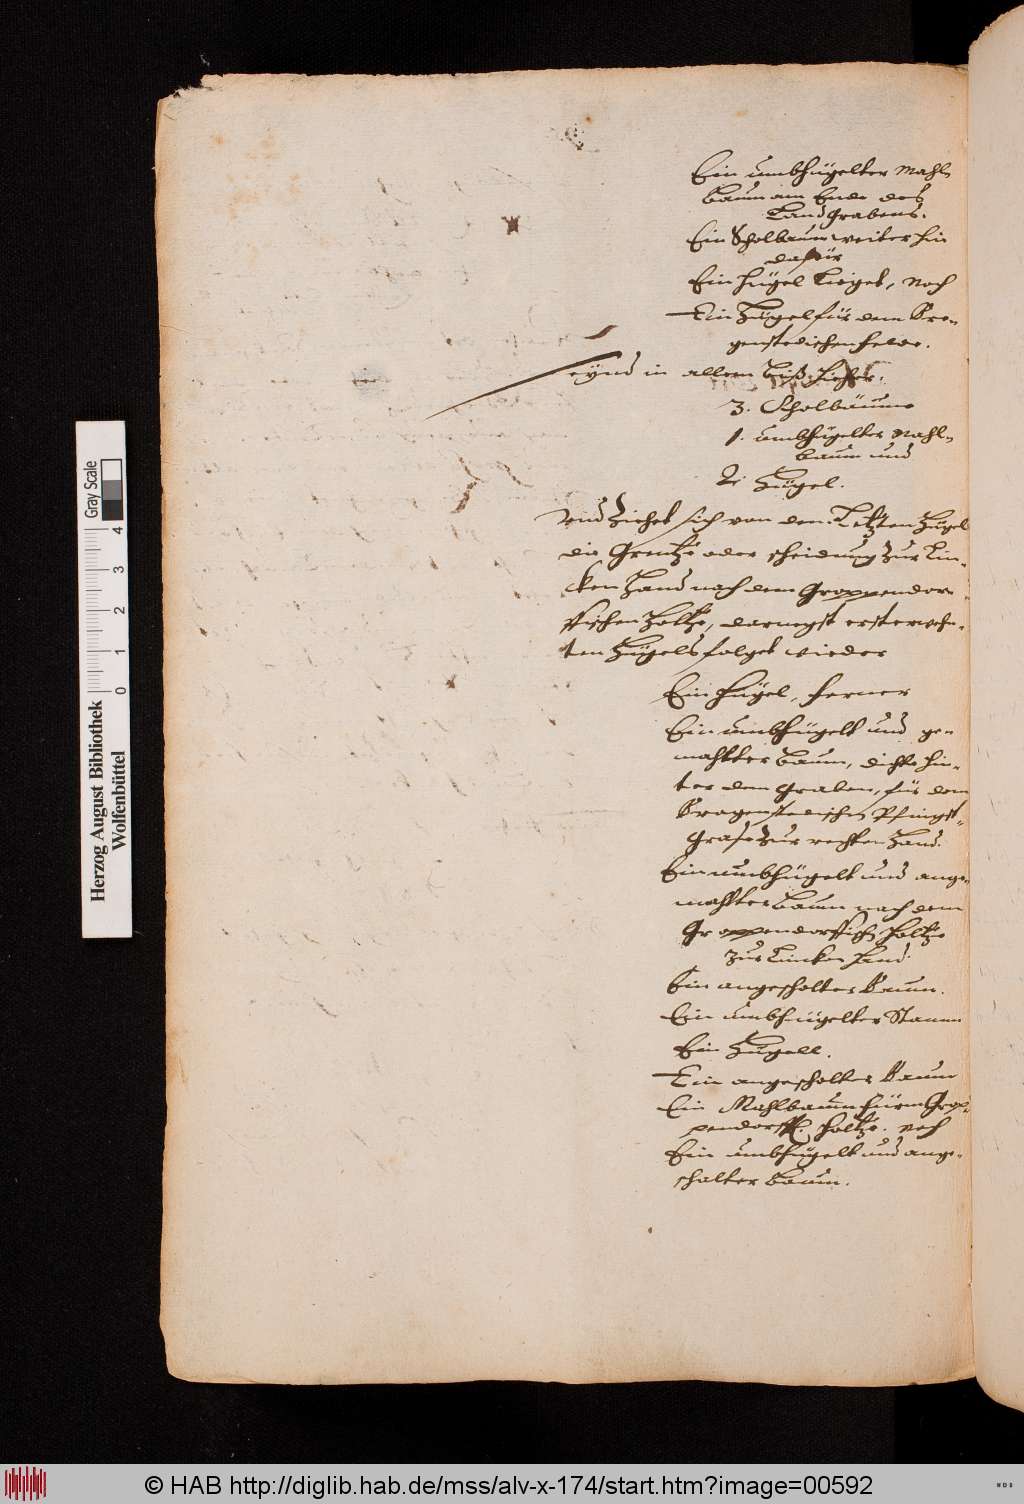 Ein umbhügelter Mahl-
Baum am Ende des
Landgrabens.
Ein Schalbaum weiter hin
dafür
Ein Hügel lieget, Noch
Ein Hügel für dem
felde.
Seynd in allem biß hieher.
3. Schalbäume
1. umbhügelter Mahl-
baum und
Hügel.
Und ziehet sich von den Letzten Hügel
die Grentze oder scheidung zur Lin-
cken Hand nach dem Groppendor-
ffischen Holtze, darnegst ersterweh-
ten Hügels folget wieder
Ein Hügel, ferner
Ein umbhügelt und ge-
mahlter Baum, dichte hin-
ter dem graben, für dem
Pfingst-
Grase zur rechten Hand.
Ein umbhügelt und ange-
mahlter Baum nach dem
Groppendorffisch Holtze
zur Lincken Hand.
Ein angeschalter Baum.
Ein umbhügelter Stamm
Ein Hügell.
Ein angeschalter Baum
Ein Mahlbaum fürm Grop-
pendorff. Holtze. noch
Ein umbhügelt und ange-
schalter Baum.
Herzog August Bibliothek
Wolfenbüttel
0 1 2 3 4
Gray Scale
© HAB http://diglib.hab.de/mss/alv-x-174/start.htm?image=00592